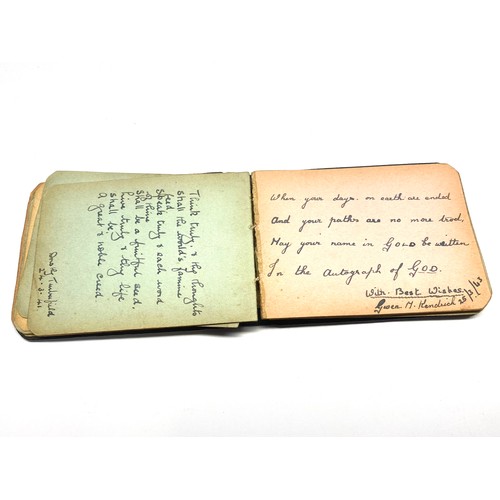 Think truly, & thy thoughts
shall the world's famine
feed
Speak truly & each word
of thine
Shall be a fruitful seed.
Live truly & thy life
shall be
A great & noble creed
24.3.41
When your days on earth are ended
And your paths are no more trod,
May your name in GOLD be written
In the Autograph of G.O.D.
With Best Wishes
Gwen M. Kendrick 25/3/43